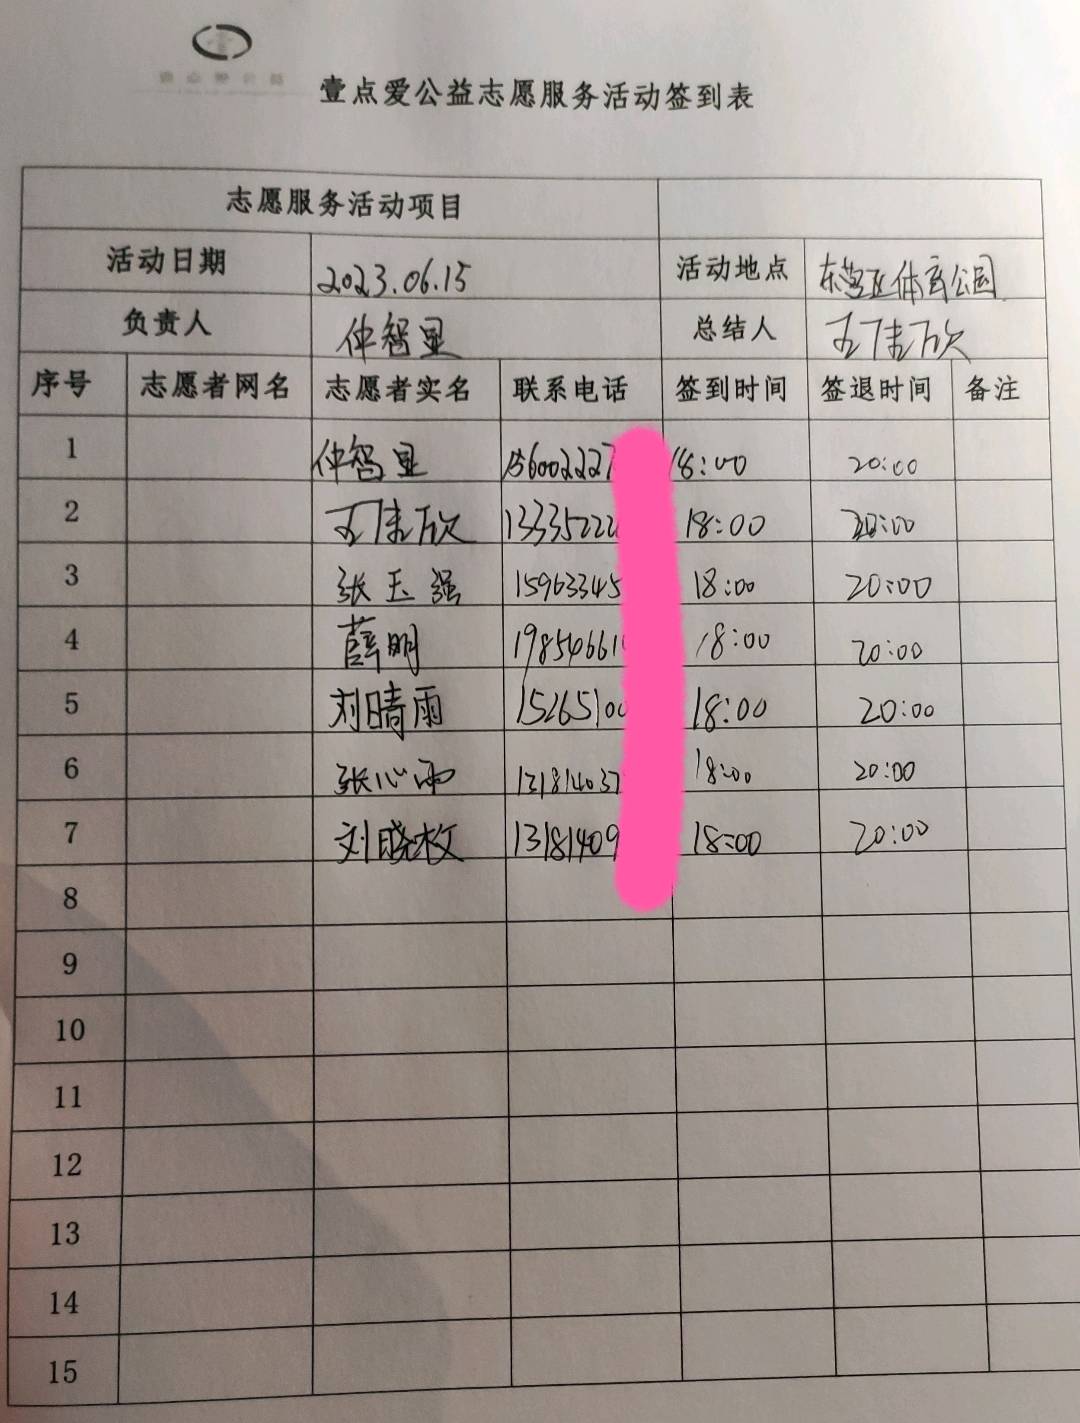 壹点爱公益志愿服务活动签到表
志愿服务活动项目
活动日期 2023.06.15 活动地点 东营区体育公园
负责人 仲智显 总结人 王佳欣
序号 志愿者网名 志愿者实名 联系电话 签到时间 签退时间 备注
1 仲智显 15600227 18:00 20:00
2 王佳欣 13335222 18:00 20:00
3 张玉强 15963345 18:00 20:00
4 薛明 19854661 18:00 20:00
5 刘晴雨 1526510 18:00 20:00
6 张心雨 13181403 18:00 20:00
7 刘晓枚 13181409 18:00 20:00
8
9
10
11
12
13
14
15